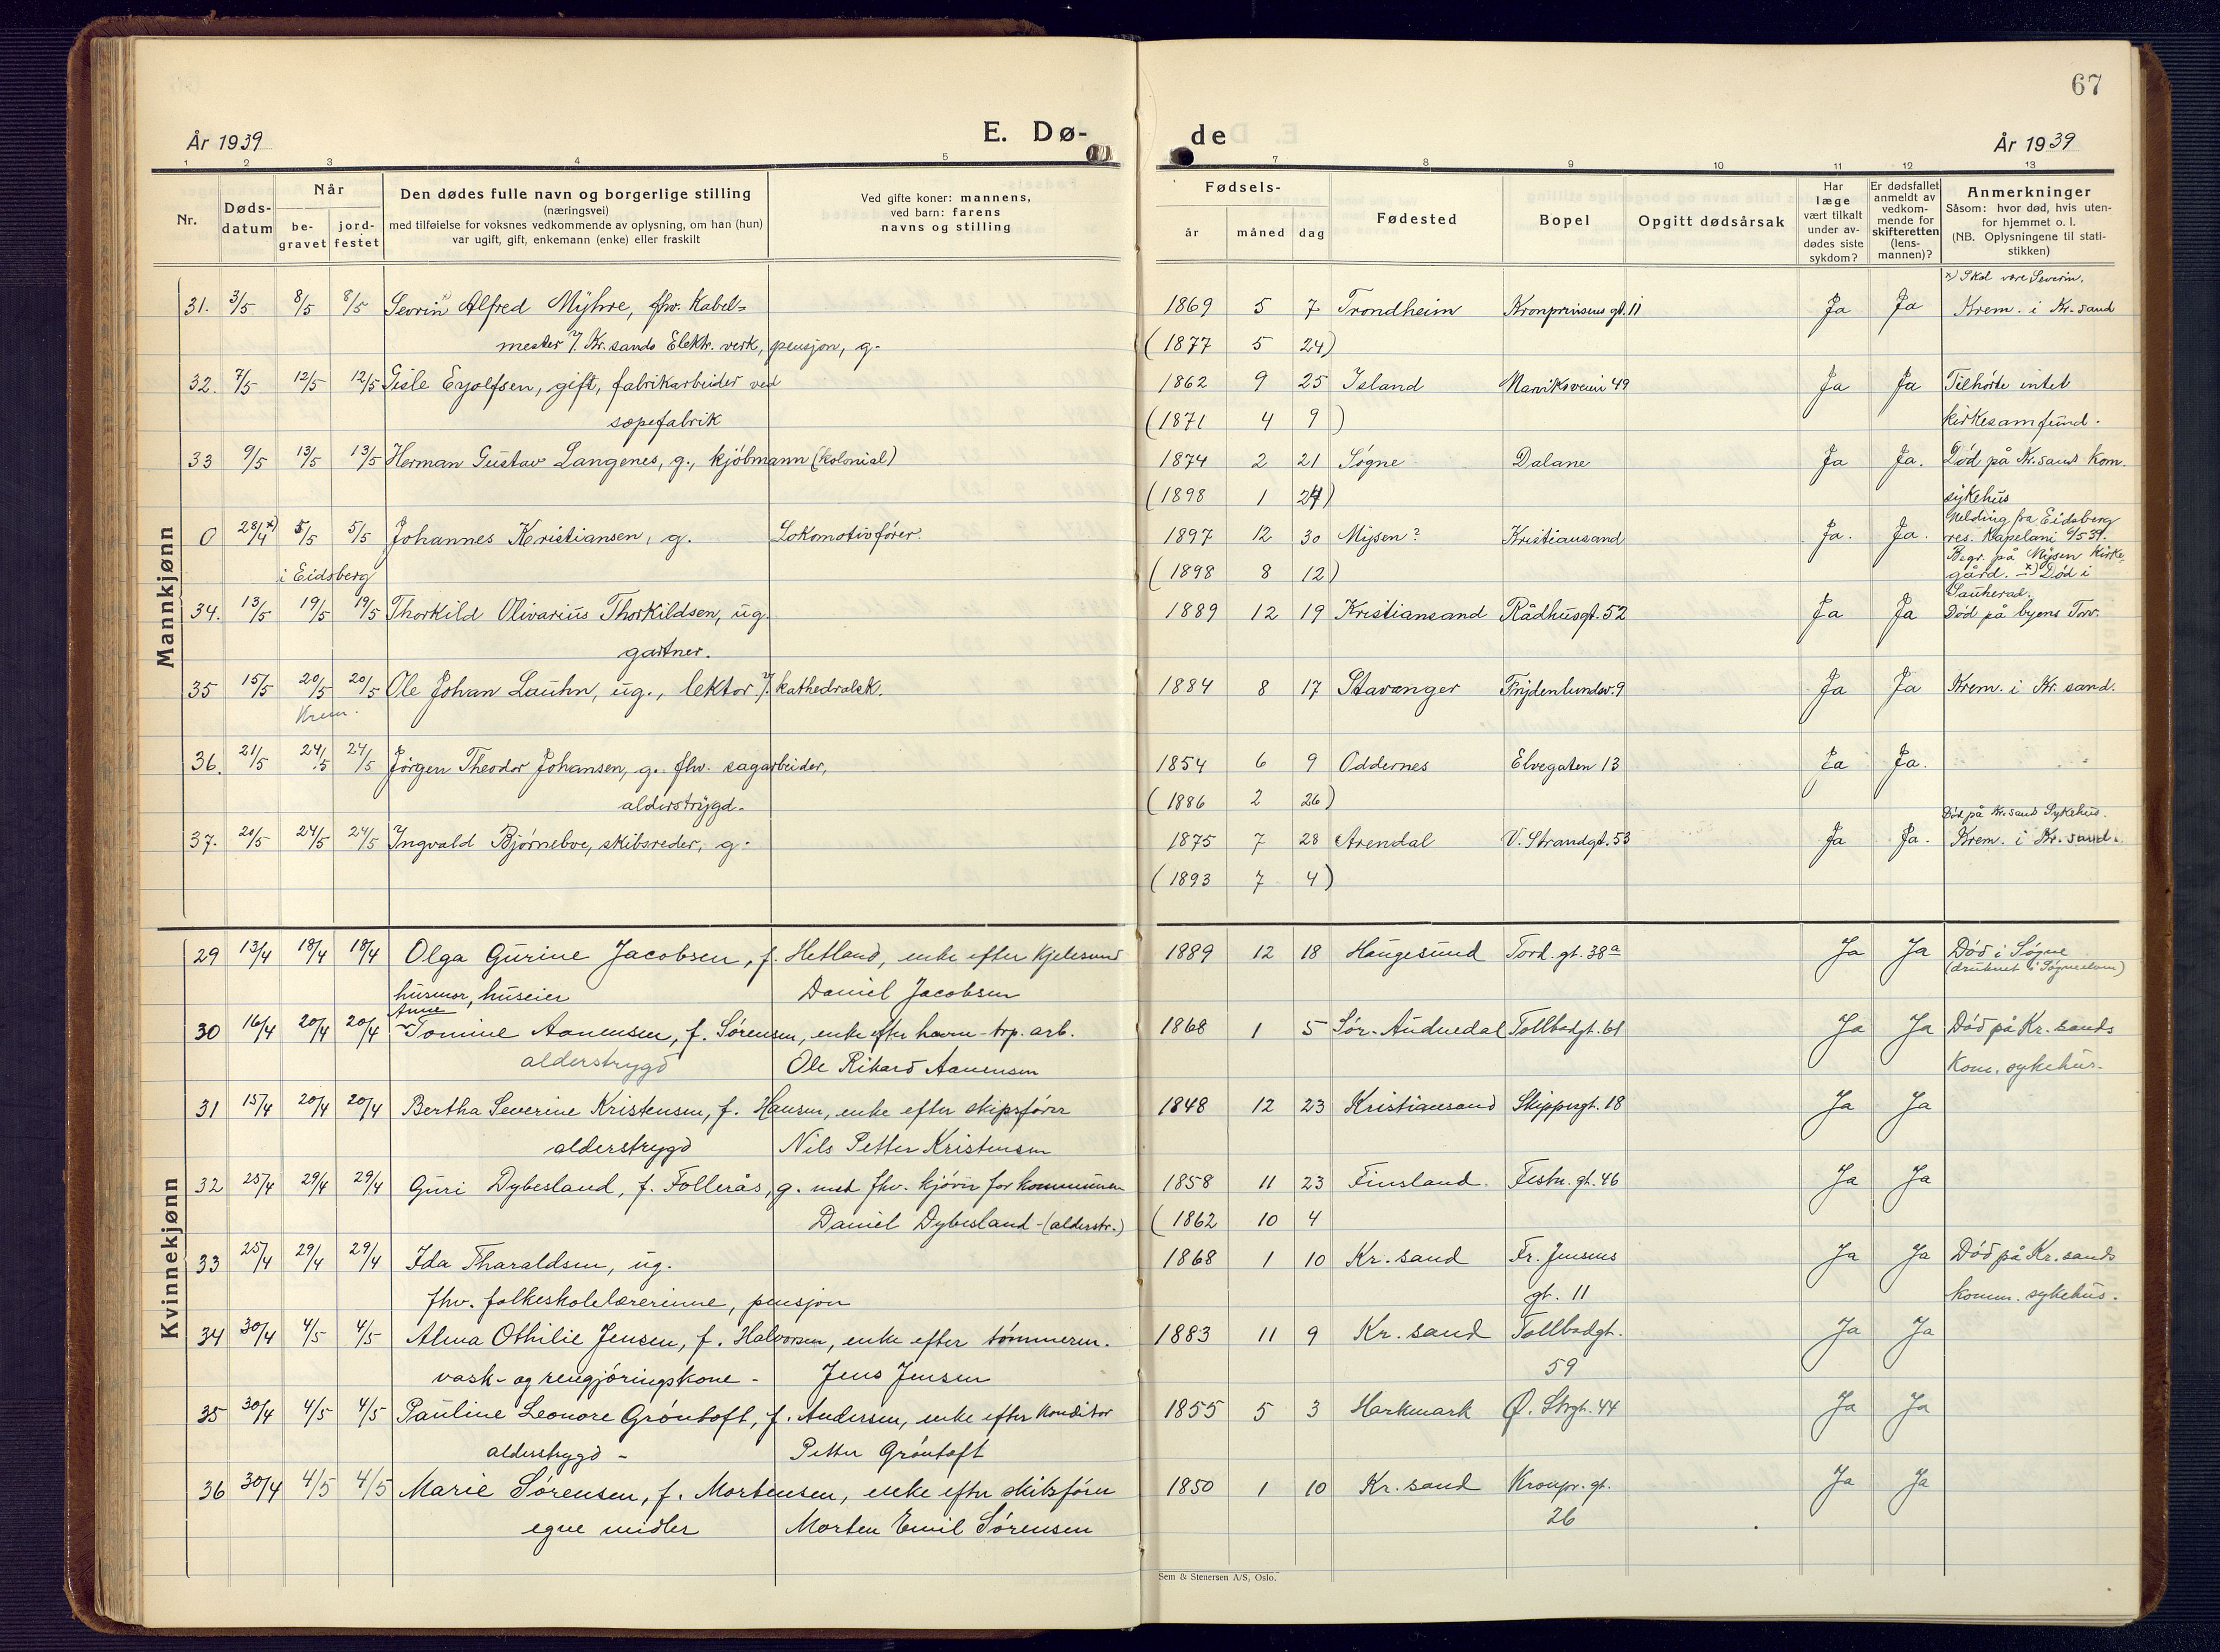 67
År 1939 E. Dø- de År 1939
1 2 3 4 5 7 8 9 10 11 12 13
Nr.
Døds-
datum
Når
be-
gravet
jord-
festet
Den dødes fulle navn og borgerlige stilling
(næringsvei)
med tilføielse for voksnes vedkommende av oplysning, om han (hun)
var ugift, gift, enkemann (enke) eller fraskilt
Ved gifte koner: mannens,
ved barn: farens
navns og stilling
Fødsels-
år måned dag
Fødested
Bopel
Opgitt dødsårsak
Har
læge
vært tilkalt
under av-
dødes siste
sykdom?
Er dødsfallet
anmeldt av
vedkom-
mende for
skifteretten
(lens-
mannen)?
Anmerkninger
Såsom: hvor død, hvis uten-
for hjemmet o. l.
(NB. Oplysningene til stati-
stikken)
Mannkjønn
x) Skal være Severin.
31. 3/5 8/5 8/5 Sevrin x) Alfred Myhre, fhv. Kabel= 1869 5 7 Trondheim Kronprinsens gt. 11 Ja Ja Krem. i Kr. sand
mester v/. Kr. sands Elektr. verk, pensjon, g. (1877 5 24)
32. 7/5 12/5 12/5 Gisle Eyolfsen, gift, fabrikarbeider ved 1862 9 25 Island Marviksveien 49 Ja Ja Tilhørte intet
sæpefabrik (1871 4 9) kirkesamfund.
33 9/5 13/5 13/5 Herman Gustav Langenes, g., kjøbmann (kolonial) 1874 2 21 Søgne Dalane Ja Ja. Død på Kr. sand Kom.
(1898 1 24) sykehus
0 28/4 x) 5/5 5/5 Johannes Kristiansen, g. Lokomotivfører. 1897 12 30 Mysen? Kristiansand Ja. Ja. Melding fra Eidsberg
res. Kapelani 6/5 39.
Begr. på Mysen Kirke-
i Eidsberg (1898 8 12) gård. x) Død i
Sauherad.
34. 13/5 19/5 19/5 Thorkild Olivarius Thorkildsen, ug. 1889 12 19 Kristiansand Rådhusgt. 52 Ja Ja Død på byens Torv.
gartner.
35 15/5 20/5 20/5 Ole Johan Lauhn, ug., lektor v/. kathedralsk. 1884 8 17 Stavanger Frydenlundsv. 9 Ja Ja Krem. i Kr. sand.
Krem.
36. 21/5 24/5 24/5 Jørgen Theodor Johansen, g. fhv. sagarbeider, 1854 6 9 Oddernes Elvegaten 13 Ja Ja.
alderstrygd. (1886 2 26)
Død på Kr. sand Sykehus.
37. 20/5 24/5 24/5 Ingvald Bjørneboe, skibsreder, g. 1875 7 28 Arendal V. Strandgt. 53 Ja Ja. Krem. i Kr. sand.
(1893 7 4)
Kvinnekjønn
29 13/4 18/4 18/4 Olga Gurine Jacobsen, f. Hetland, enke efter Kjelesmed 1889 12 18 Haugesund Tord. gt. 38a Ja Ja Død i Søgne
(druknet i Søgneelven)
husmor, huseier Daniel Jacobsen
Anne
30 16/4 20/4 20/4 Tomine Aanensen, f. Sørensen, enke efter havne-trp. arb. 1868 1 5 Sør-Audnedal Tollbodgt. 61 Ja Ja Død på Kr. sands
alderstrygd Ole Rikard Aanensen Kom. sykehus.
31 15/4 20/4 20/4 Bertha Severine Kristensen, f. Hansen, enke efter skipsfører 1848 12 23 Kristiansand Skippergt. 18 Ja Ja
alderstrygd Nils Petter Kristensen
32 25/4 29/4 29/4 Guri Dybesland, f. Follerås, g. med fhv. kjører for kommunen 1858 11 23 Finsland. Festn. gt. 46 Ja Ja
Daniel Dybesland - (alderstr.) (1862 10 4
33 25/4 29/4 29/4 Ida Tharaldsen, ug. 1868 1 10 Kr. sand Fr. Jensens Ja Ja Død på Kr. sands
fhv. folkeskolelærerinne, pensjon gt. 11 komm. sykehus.
34 30/4 4/5 4/5 Alma Othilie Jensen, f. Halvorsen, enke efter tømmerm. 1883 11 9 Kr. sand Tollbodgt. Ja Ja
vask- og rengjøringskone - Jens Jensen 59
35 30/4 4/5 4/5 Pauline Leonore Grøntoft, f. Andersen, enke efter Konditor 1855 5 3 Harkmark Ø. Strgt. 44 Ja Ja
alderstrygd - Petter Grøntoft
36 30/4 4/5 4/5 Marie Sørensen, f. Mortensen, enke efter skibsfører 1850 1 10 Kr. sand Kronpr. gt. Ja Ja
egne midler Morten Emil Sørensen 26
Sem & Stenersen A/S, Oslo.